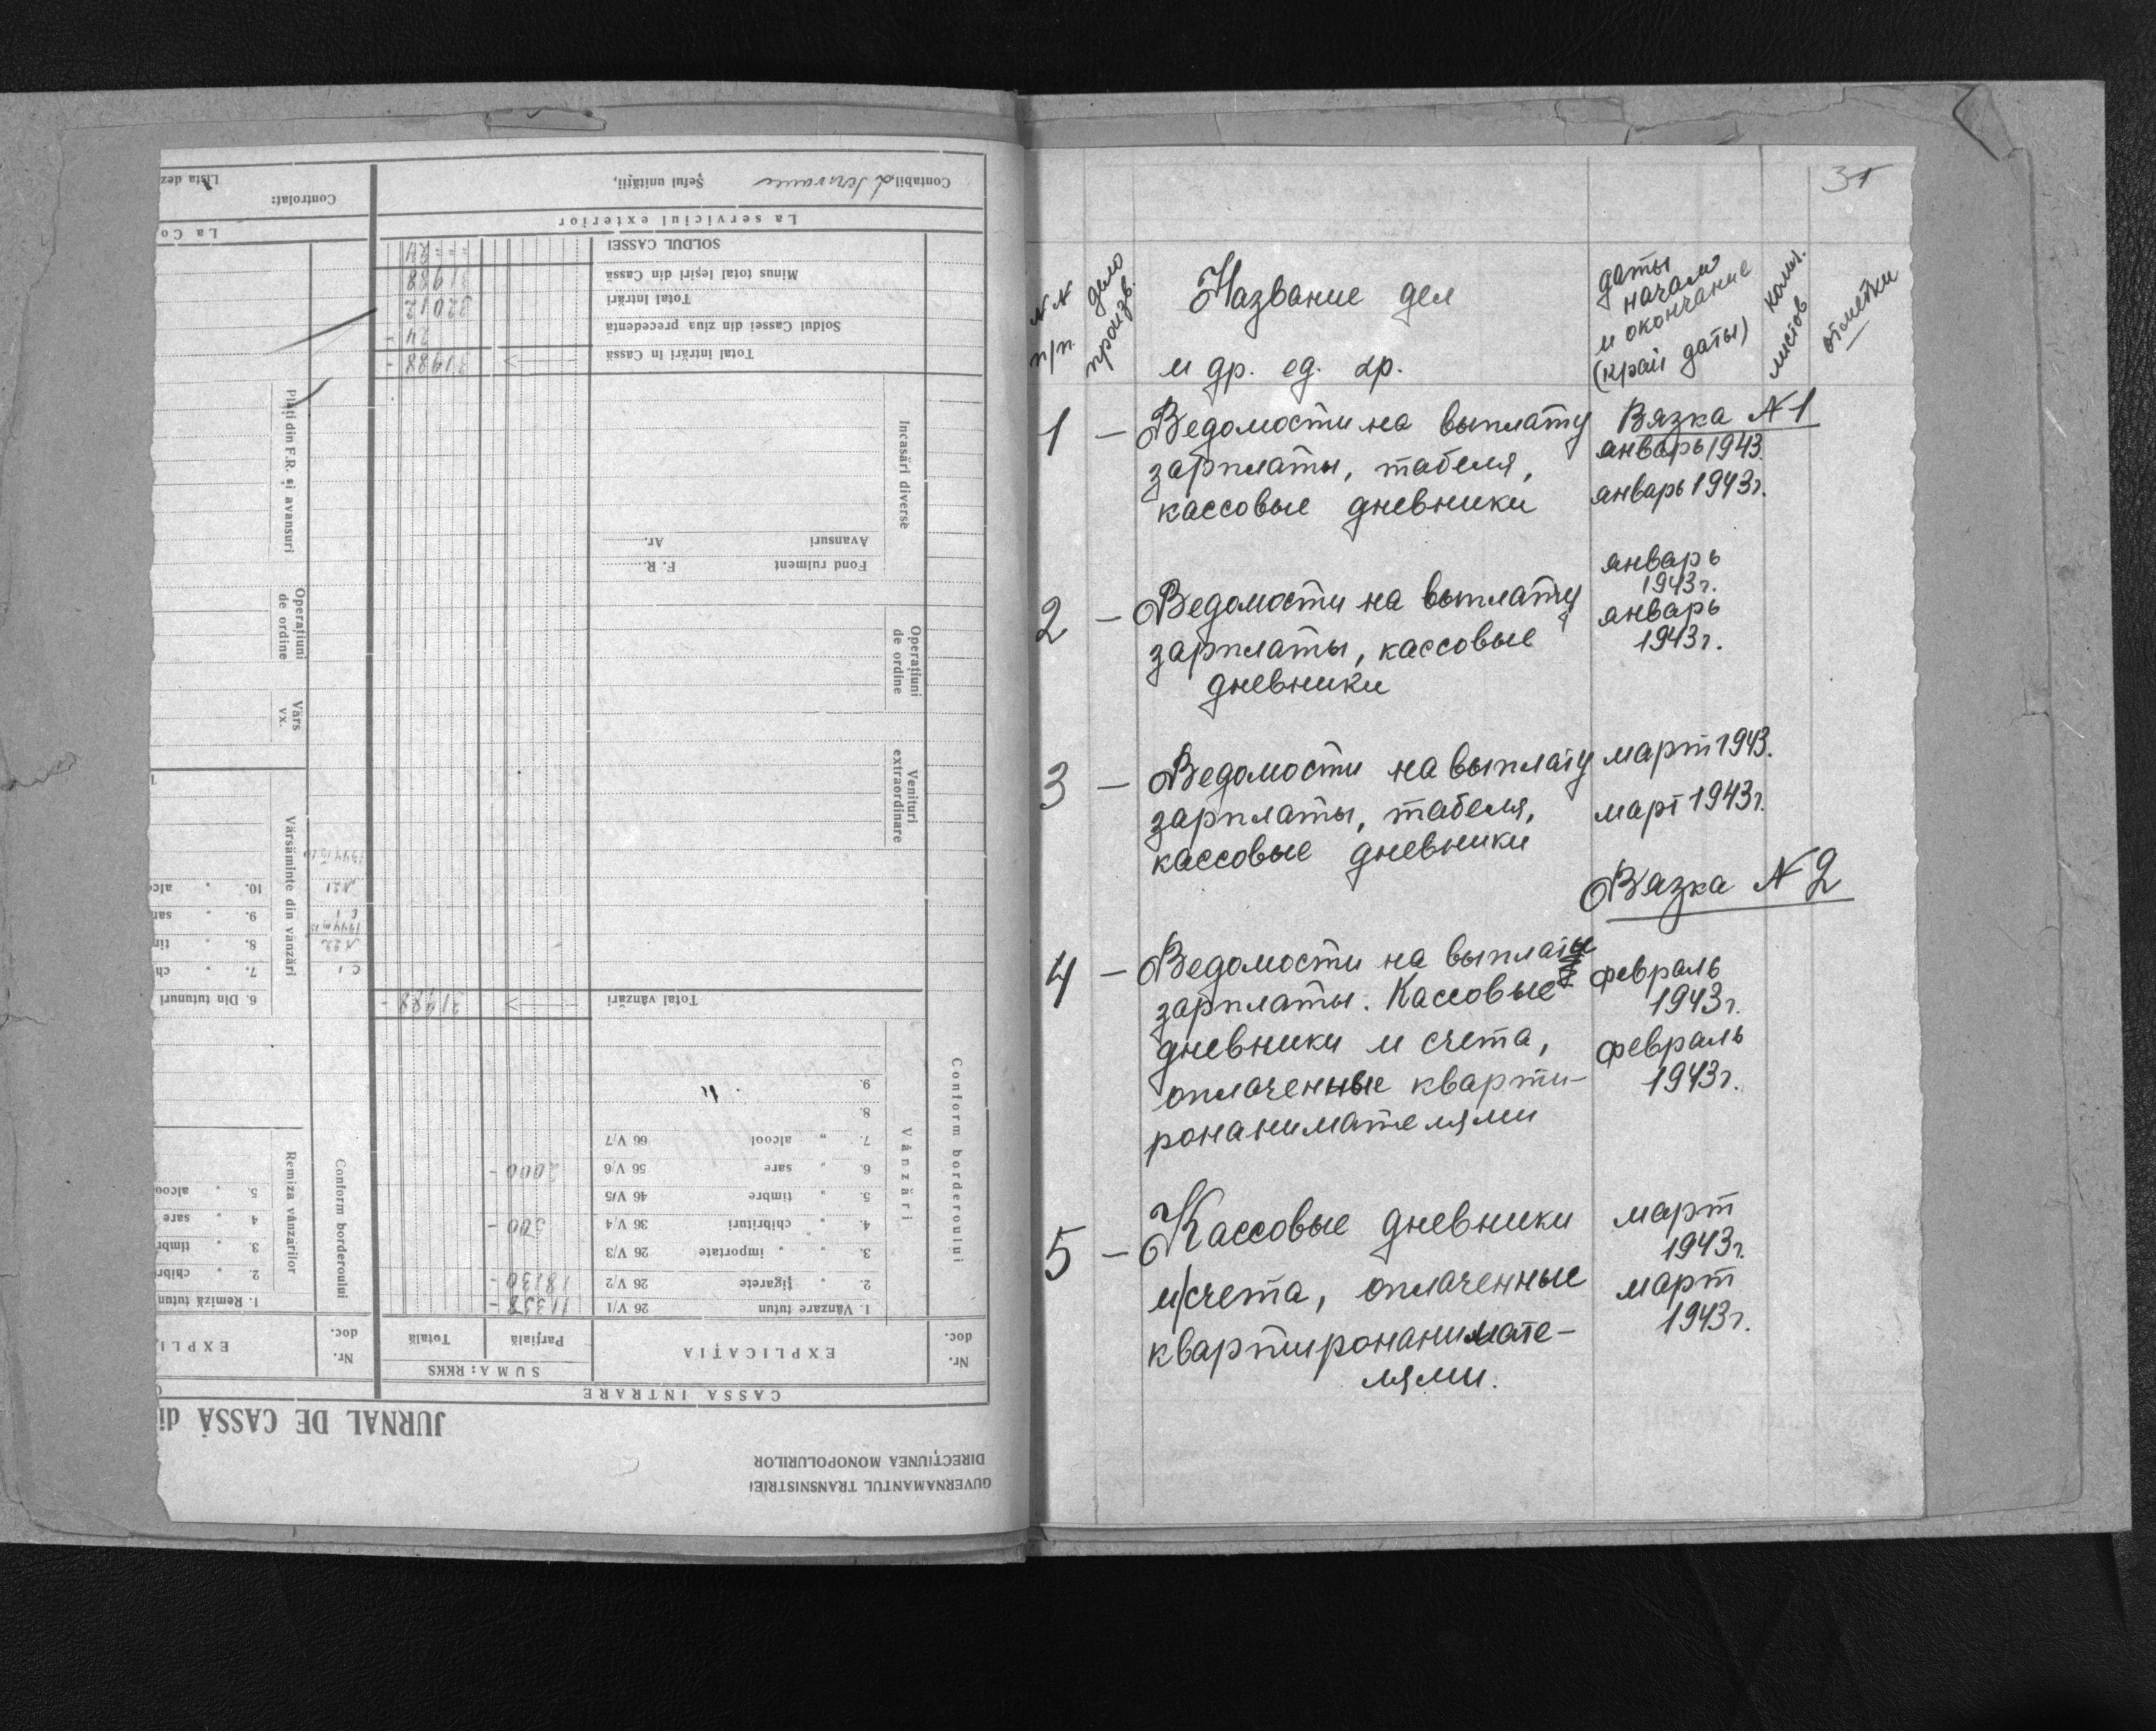 GUVERNAMANTUL TRANSNISTRIEI
DIRECȚIUNEA MONOPOLURILOR
JURNAL DE CASSĂ di
CASSA INTRARE
Nr. doc.
EXPLICAȚIA
SUMA: RKKS
Parțială
Totală
Conform borderoului
Vânzări
1. Vânzare tutun 26 V/1 11358 -
2. " țigarete 26 V/2 18130 -
3. " " importate 26 V/3
4. " chibrituri 36 V/4 500 -
5. " timbre 46 V/5
6. " sare 56 V/6 2000 -
7. " alcool 66 V/7
8.
9.
Total vânzări 31988 -
Venituri extraordinare
Operațiuni de ordine
Incasări diverse
Fond rulment F. R.
Avansuri Ar.
Total intrări în Cassă 31988 -
Soldul Cassei din ziua precedentă 24 -
Total intrări 32012
Minus total Ieșiri din Cassă 31988
SOLDUL CASSEI = = = 24
La serviciul exterior
Contabil,
Șeful unității,
Nr. doc.
EXPLI
Conform borderoului
Remiza vânzărilor
1. Remiză tutun
2. " chibri
3. " timbr
4 " sare
5. " alcoo
Vărsăminte din vânzări
6. Din tutunuri
7. " ch
8. " tim
9. " sar
10. " alco
Vărs
vx.
Operațiuni de ordine
Plăți din F.R. și avansuri
La Co
Controlat:
Lista dez
31
NN п/п.
дело произв.
Название дел
и др. ед. хр.
даты
начала
и окончание
(край даты)
колич.
листов
отметки
Вязка N 1
1 — Ведомости на выплату
январь 1943.
зарплаты, табеля,
январь 1943г.
кассовые дневники
январь
1943г.
2 — Ведомости на выплату
январь
зарплаты, кассовые
1943г.
дневники
3 — Ведомости на выплату март 1943.
зарплаты, табеля,
март 1943г.
кассовые дневники
Вязка N 2
4 — Ведомости на выплату
февраль
зарплаты. Кассовые
1943г.
дневники и счета,
февраль
оплаченные кварти-
1943г.
ронанимателями
5 — Кассовые дневники
март
1943г.
и счета, оплаченные
март
квартиронанимате-
1943г.
лями.